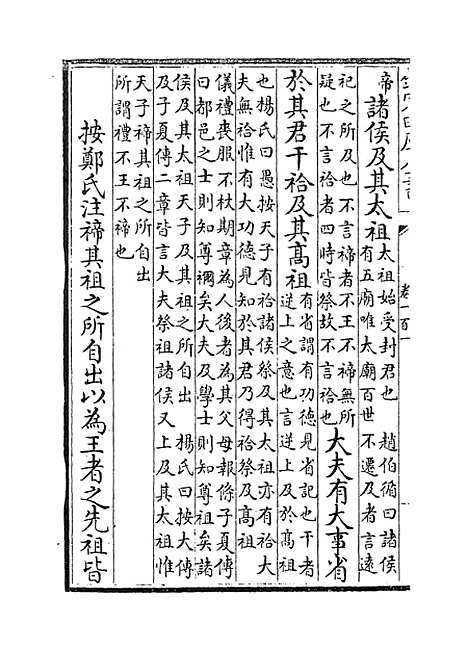 卷一百一
帝諸侯及其太祖
太祖始受封君也 趙伯循曰諸侯
有五廟唯太廟百世不遷及者言逺
祀之所及也不言禘者不王不禘無所
疑也不言祫者四時皆祭故不言祫也
大夫有大事省
於其君干祫及其髙祖
有省謂有功徳見省記也干者
逆上之意也言逆上及於髙祖
也楊氏曰愚按天子有祫諸侯祭及其太祖亦有祫大
夫無祫惟有大功徳見知於其君乃得祫祭及髙祖
儀禮喪服不杖期章為人後者為其父母報條子夏傳
曰都邑之士則知尊禰矣大夫及學士則知尊祖矣諸
侯及其太祖天子及其祖之所自出 楊氏曰按大傳
及子夏傳二章皆言大夫祭祖諸侯又上及其太祖惟
天子禘其祖之所自出
所謂禮不王不禘也
按鄭氏注禘其祖之所自出以為王者之先祖皆